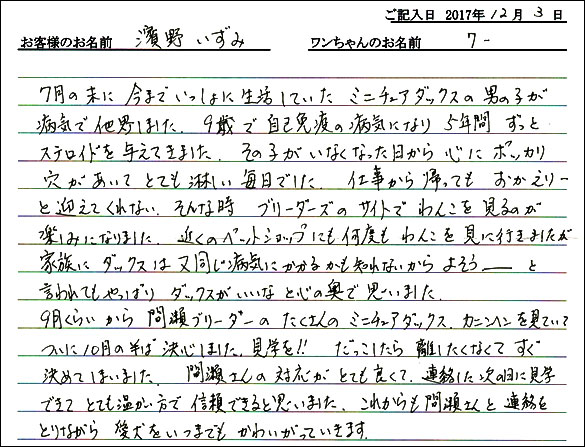 ご記入日 2017年 12月 3日
お客様のお名前 濱野 いずみ ワンちゃんのお名前 クー
7月の末に 今まで いっしょに 生活していた ミニチュアダックスの 男の子が
病気で 他界しました. 9歳で 自己免疫の病気になり 5年間 ずっと
ステロイドを 与えてきました. その子が いなくなった日から 心に ポッカリ
穴が あいて とても 淋しい 毎日でした. 仕事から 帰っても おかえりー
と迎えてくれない. そんな時 ブリーダーズの サイトで わんこを 見るのが
楽しみになりました. 近くの ペットショップにも 何度も わんこを 見に行きましたが
家族に ダックスは 又 同じ病気に かかるかも知れないから よそう―― と
言われても やっぱり ダックスが いいな と心の奥で 思いました.
9月くらい から 間瀬ブリーダーの たくさんの ミニチュアダックス. カニンヘンを 見ていて
ついに 10月の半ば 決心しました. 見学を!! だっこしたら 離したくなくて すぐ
決めてしまいました. 間瀬さんの 対応が とても良くて. 連絡した 次の日に 見学
できて とても温かい方で 信頼できると思いました. これからも 間瀬さんと 連絡を
とりながら 愛犬を いつまでも かわいがっていきます.